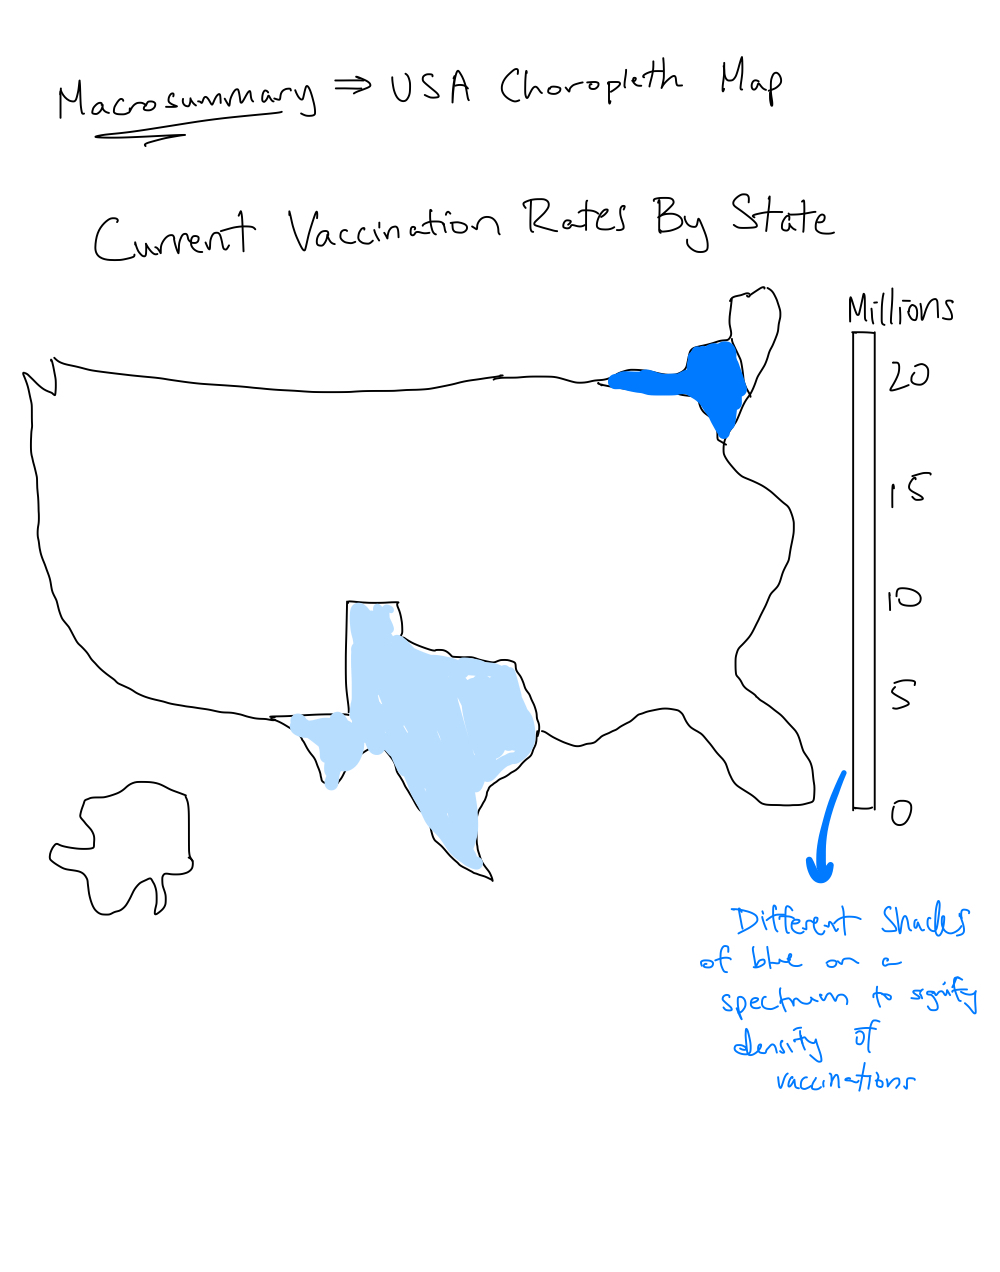 Macrosummary ⇒ USA Choropleth Map
Current Vaccination Rates By State
Millions
20
15
10
5
0
Different Shades
of blue on a
spectrum to signify
density of
vaccinations